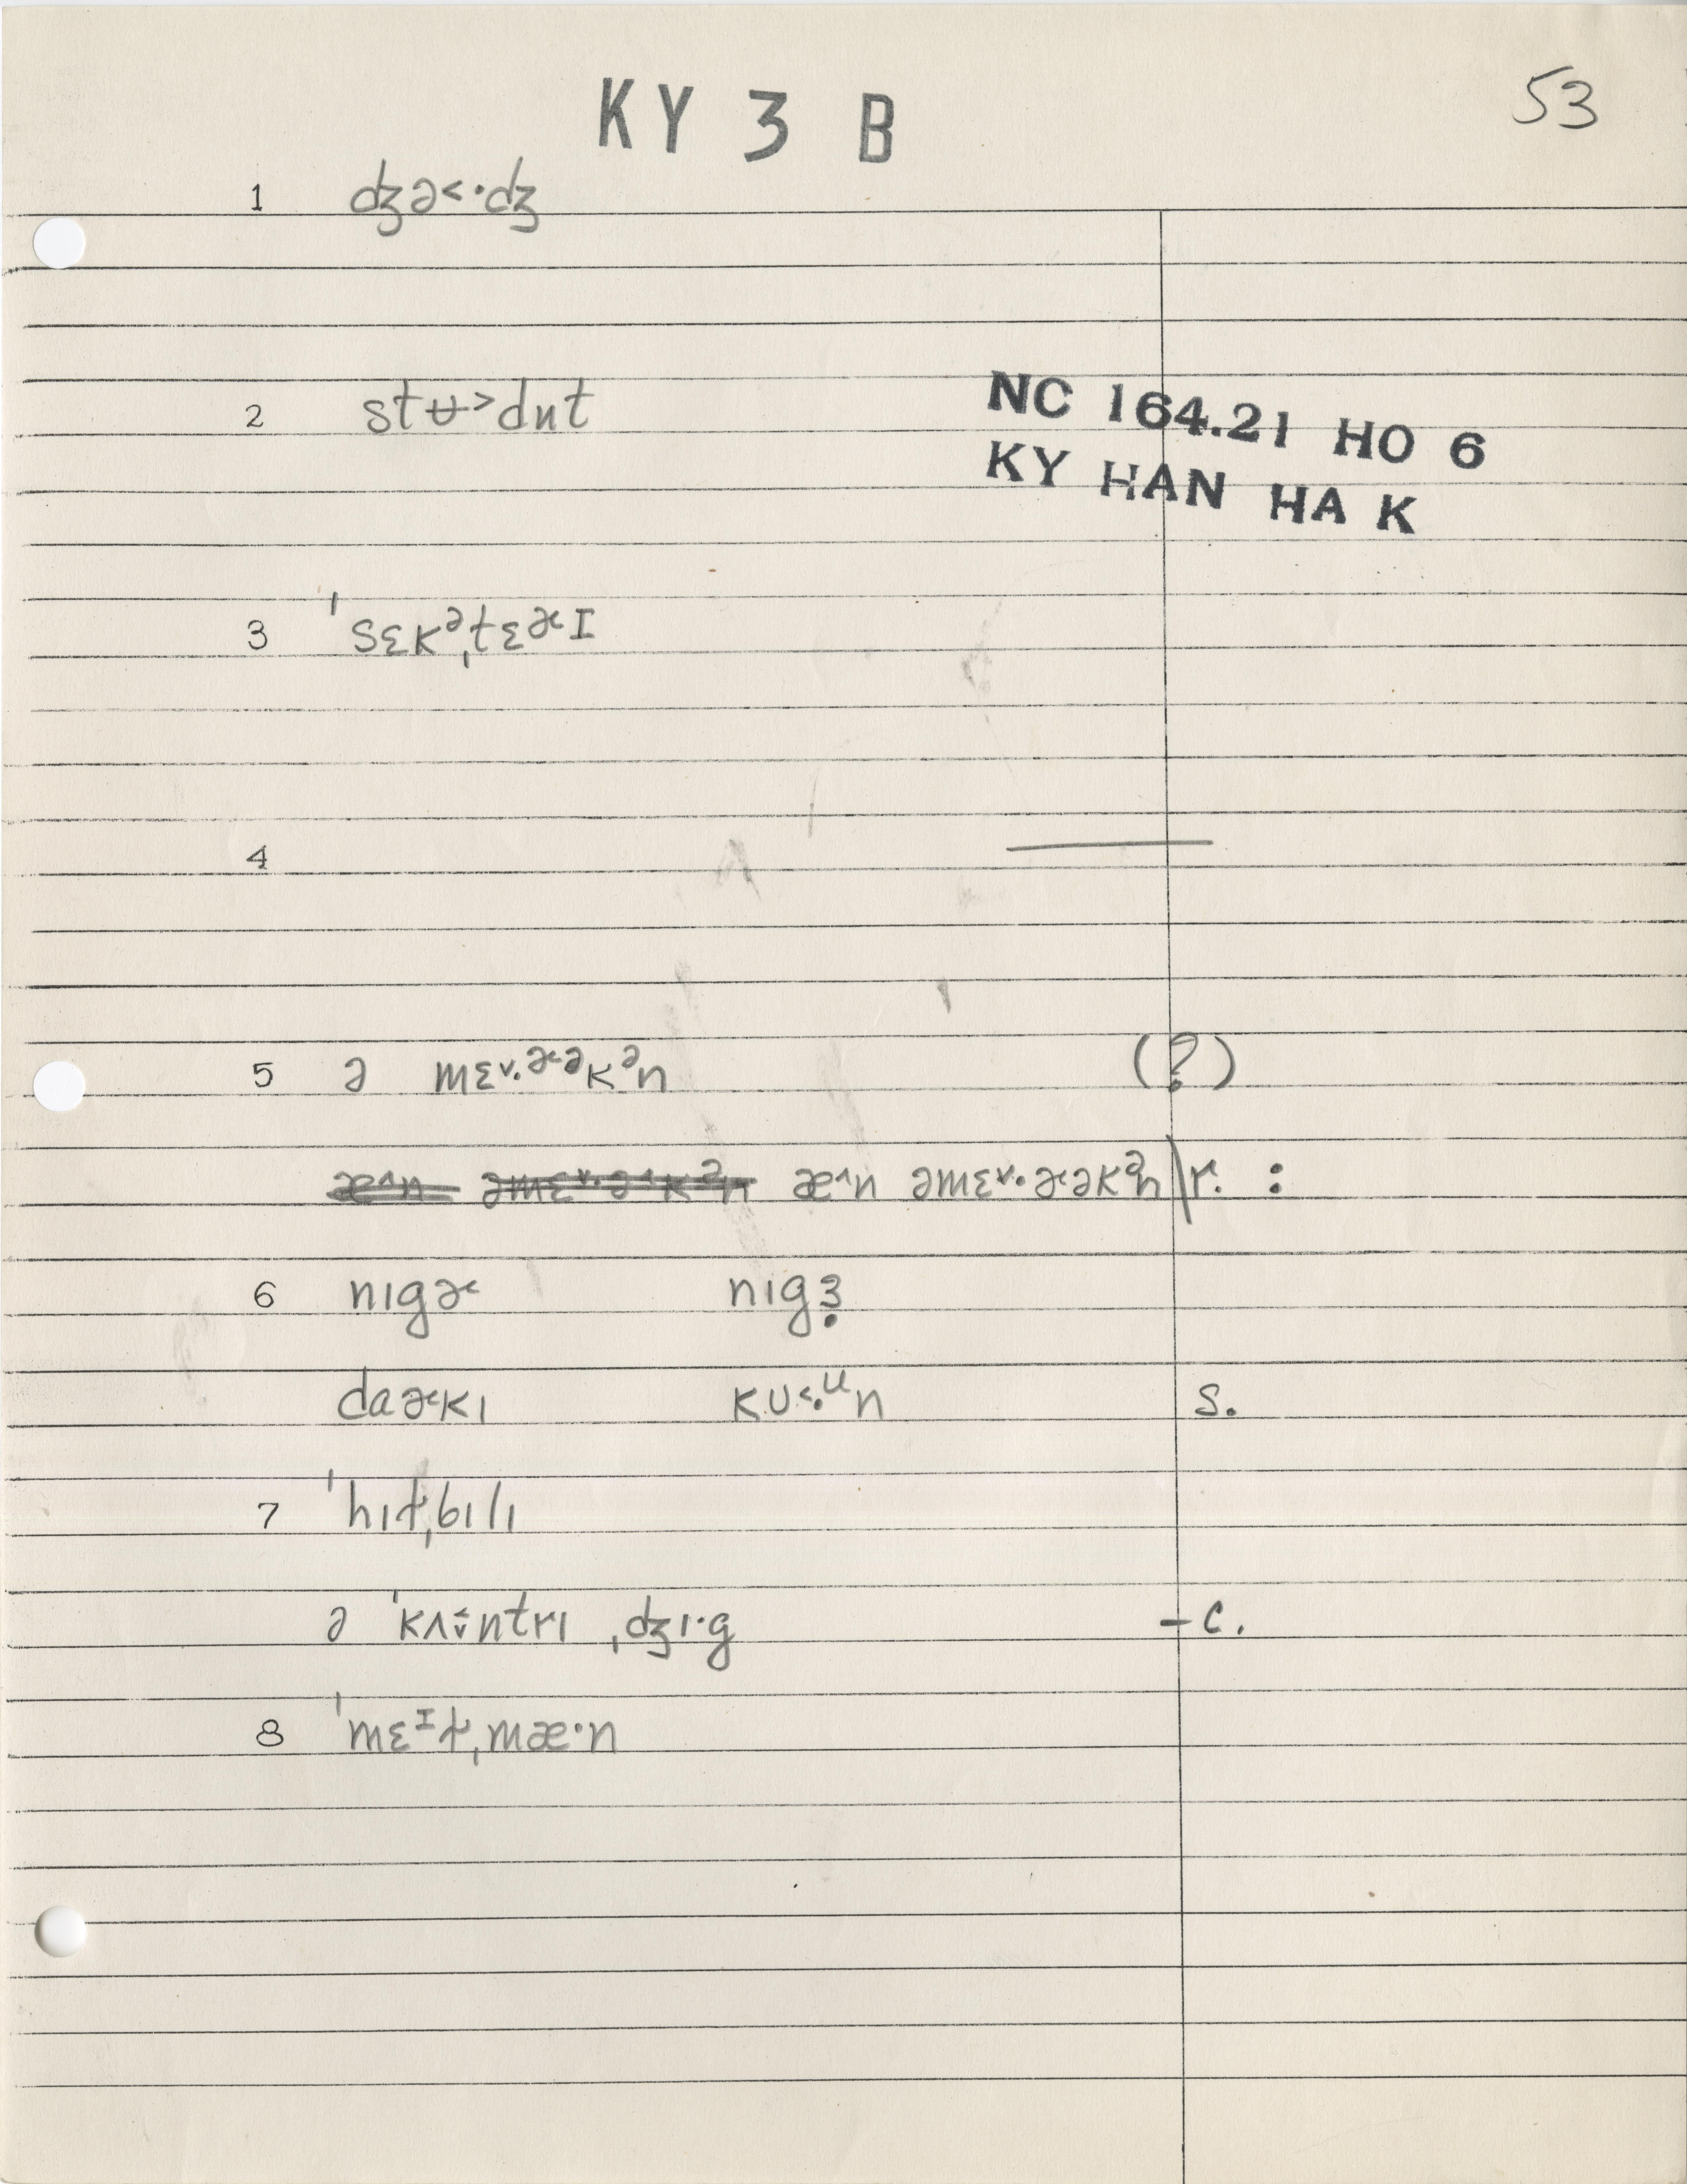 KY 3 B
53
1 dʒə<·dʒ
2 stʉ>dnt
NC 164.21 HO 6
KY HAN HA K
3 ˈsɛkᵊˌtɛɚɪ
4 ——
5 ə mɛ˅·ɚəkᵊn (?)
æ˄n əmɛ˅·ə˞˄kᵊn æ˄n əmɛ˅·ɚəkᵊn\r. :
6 nɪgɚ nɪgɜ̣
daɚkɪ kʊ<·ᵘn s.
7 ˈhɪt̬ˌbɪlɪ
ə ˈkʌʊ̌ntrɪ ˌdʒɪ·g -c.
8 ˈmɛᴵt̬ˌmæ·n